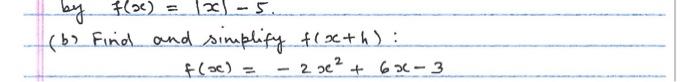 by f(x) = |x| - 5.
(b) Find and simplify f(x+h) :
f(x) = - 2x² + 6x - 3